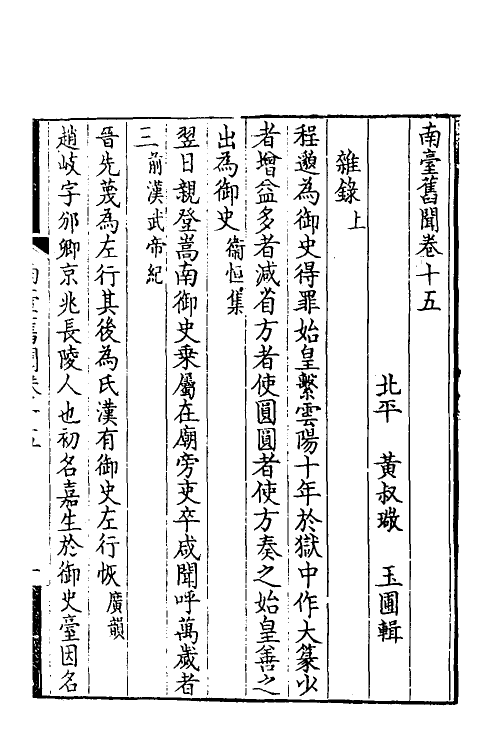 南臺舊聞卷十五
北平 黃叔璥 玉圃輯
雜錄上
程邈為御史得罪始皇繫雲陽十年於獄中作大篆少
者增益多者減省方者使圓圓者使方奏之始皇善之
出為御史衞恒集
翌日親登嵩南御史乘屬在廟旁吏卒咸聞呼萬歲者
三前漢武帝紀
晉先蔑為左行其後為氏漢有御史左行恢廣韻
趙岐字邠卿京兆長陵人也初名嘉生於御史臺因名
南臺舊聞卷十五
一